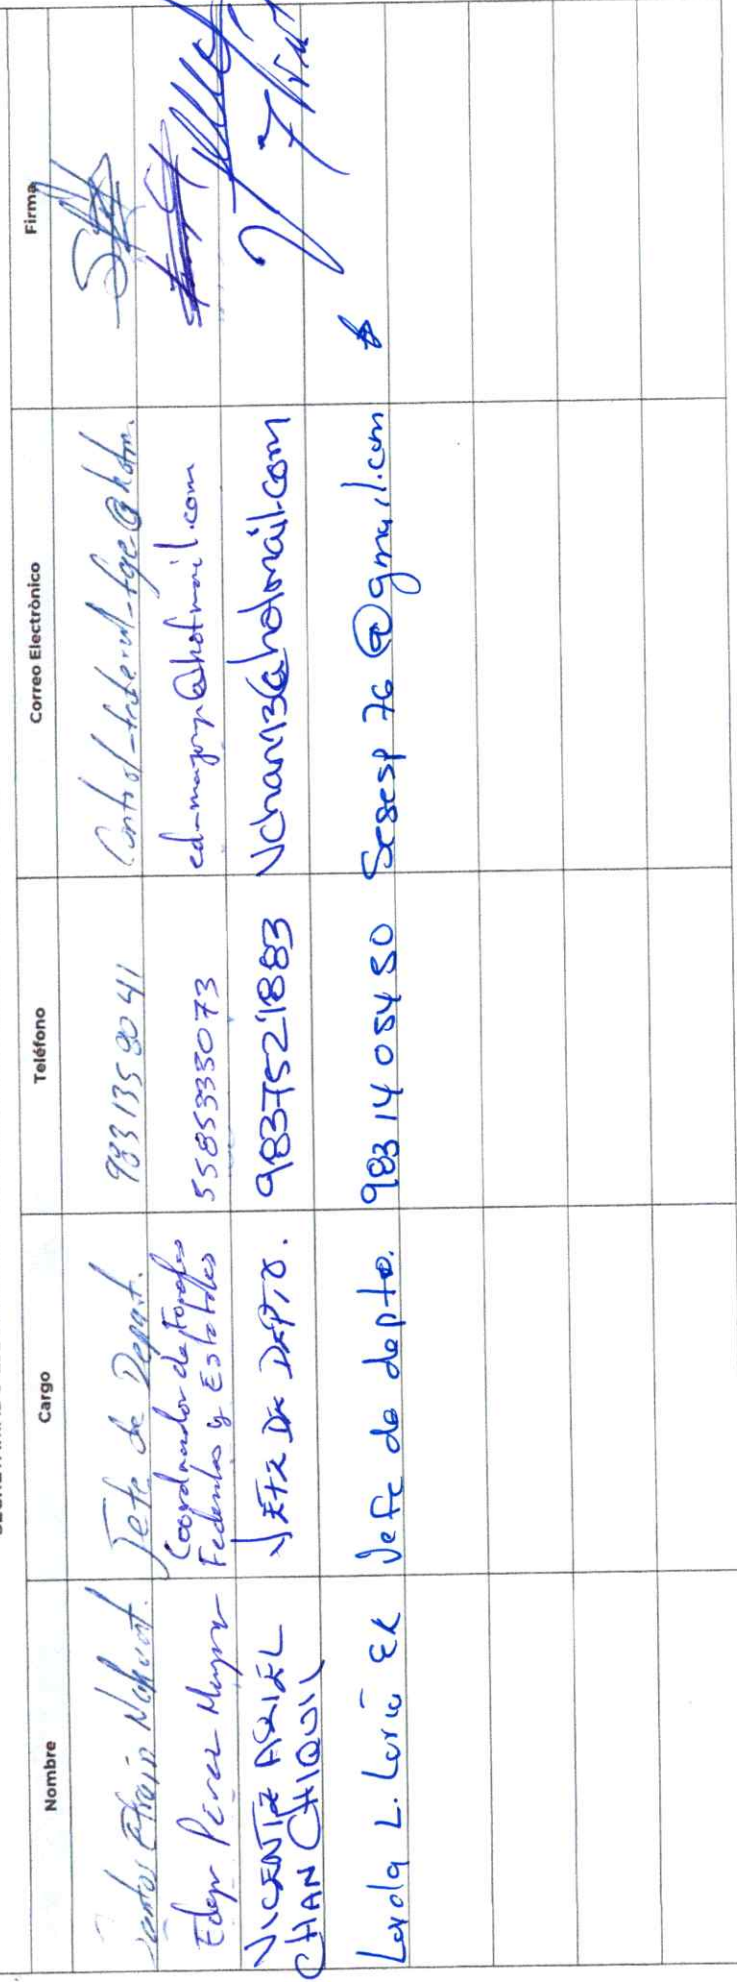 Nombre Cargo Teléfono Correo Electrónico Firma
Santos Efraín Jefe de Depart. 983 135 90 41
Edgar Pérez Coordinador de Fondos
Federales y Estatales 5585333073 ed-mayorp@hotmail.com
VICENTE ARIEL
CHAN CHIQUIL JEFE DE DEPTO. 9837521883 Vchan13@hotmail.com
L. Jefe de depto. 983 14 054 80 Sesesp 76 @gmail.com